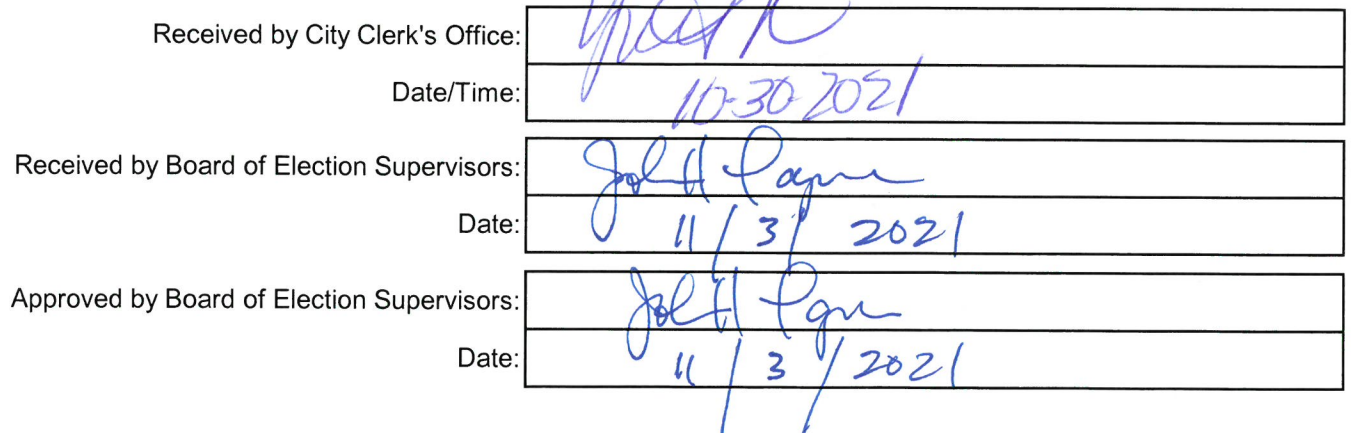 Received by City Clerk's Office:
Date/Time: 10-30-2021
Received by Board of Election Supervisors: John H Payne
Date: 11/3/2021
Approved by Board of Election Supervisors: John H Payne
Date: 11/3/2021